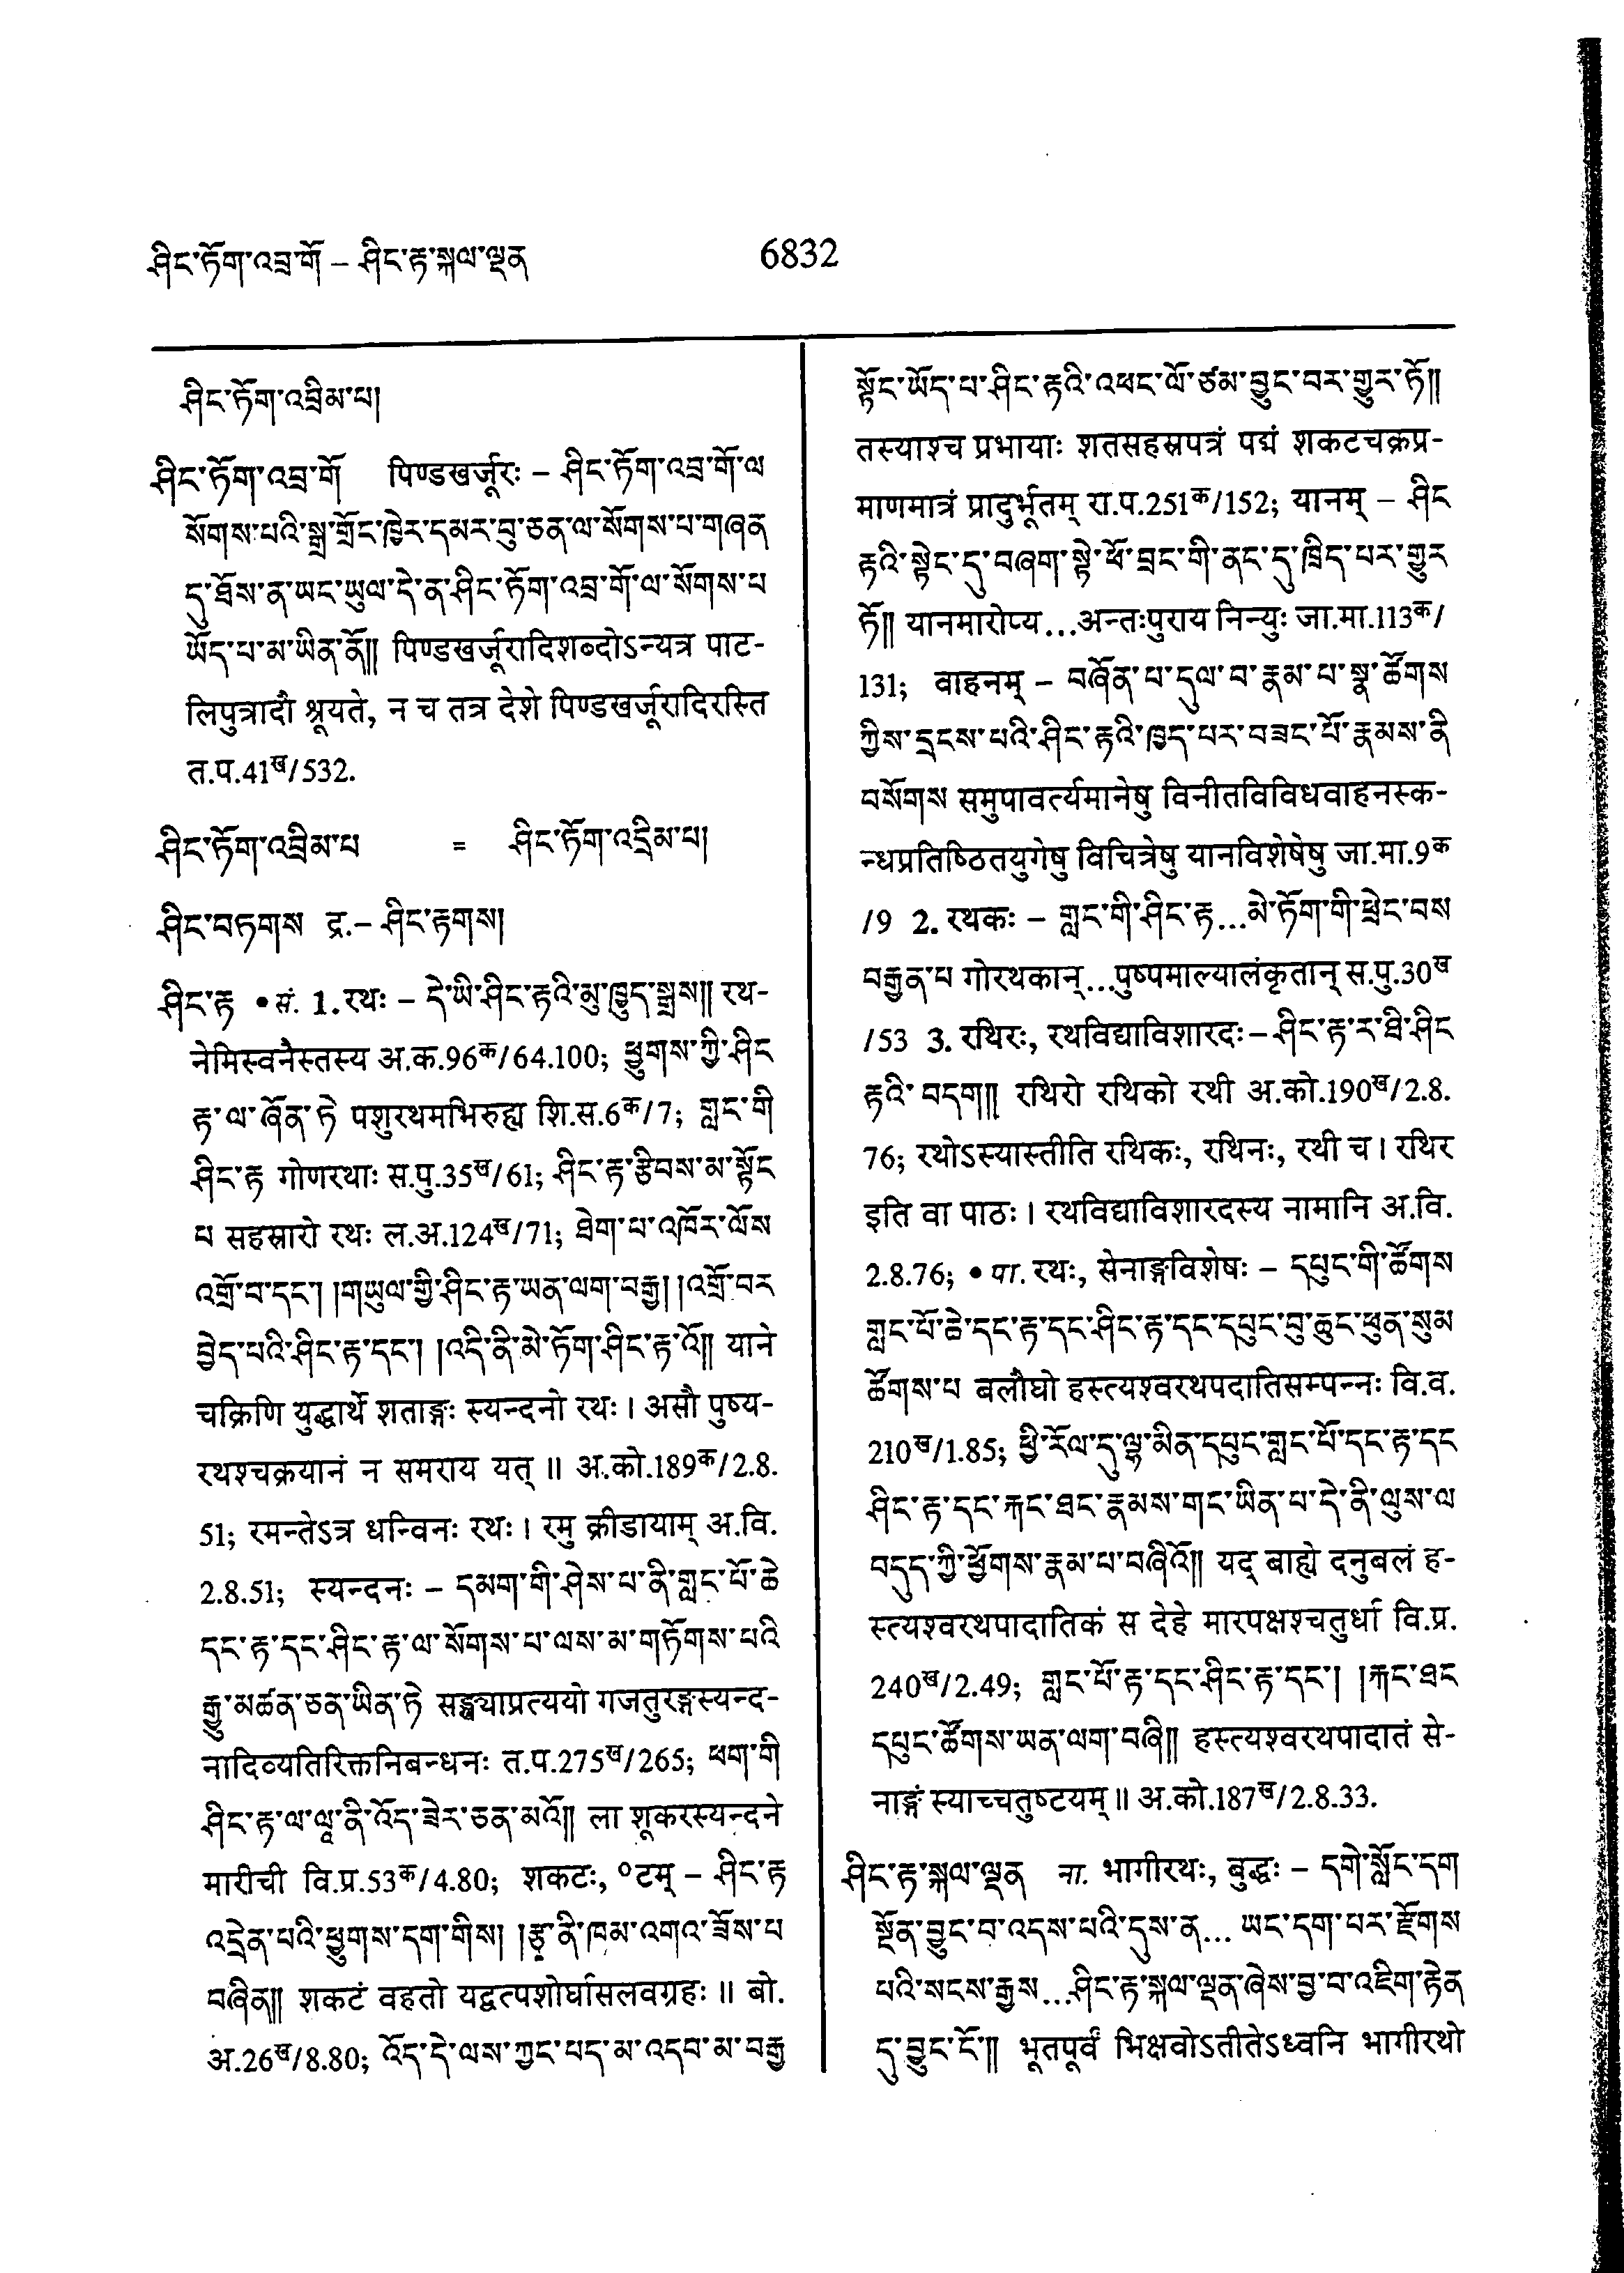 ཤིང་ཏོག་འབྲ་གོ – ཤིང་རྟ་སྐལ་ལྡན 6832
ཤིང་ཏོག་འབྲིམ་པ།
ཤིང་ཏོག་འབྲ་གོ पिण्डखर्जूरः – ཤིང་ཏོག་འབྲ་གོ་ལ
སོགས་པའི་སྒྲ་གྲོང་ཁྱེར་དམར་བུ་ཅན་ལ་སོགས་པ་གཞན
དུ་ཐོས་ན་ཡང་ཡུལ་དེ་ན་ཤིང་ཏོག་འབྲ་གོ་ལ་སོགས་པ
ཡོད་པ་མ་ཡིན་ནོ།། पिण्डखर्जूरादिशब्दोऽन्यत्र पाट-
लिपुत्रादौ श्रूयते, न च तत्र देशे पिण्डखर्जूरादिरस्ति
त.प.41ख/532.
ཤིང་ཏོག་འབྲིམ་པ = ཤིང་ཏོག་འདྲིམ་པ།
ཤིང་བཏགས द्र.– ཤིང་རྟགས།
ཤིང་རྟ • सं. 1. रथः – དེ་ཡི་ཤིང་རྟའི་མུ་ཁྱུད་སྒྲས།། रथ-
नेमिस्वनैस्तस्य अ.क.96क/64.100; ཕྱུགས་ཀྱི་ཤིང
རྟ་ལ་ཞོན་ཏེ पशुरथमभिरुह्य शि.स.6क/7; གླང་གི
ཤིང་རྟ गोणरथाः स.पु.35ख/61; ཤིང་རྟ་རྩིབས་མ་སྟོང
པ सहस्रारो रथः ल.अ.124ख/71; ཐེག་པ་འཁོར་ལོས
འགྲོ་བ་དང་། །གཡུལ་གྱི་ཤིང་རྟ་ཡན་ལག་བརྒྱ། །འགྲོ་བར
བྱེད་པའི་ཤིང་རྟ་དང་། །འདི་ནི་མེ་ཏོག་ཤིང་རྟ་འོ།། याने
चक्रिणि युद्धार्थे शताङ्गः स्यन्दनो रथः । असौ पुष्य-
रथश्चक्रयानं न समराय यत् ॥ अ.को.189क/2.8.
51; रमन्तेऽत्र धन्विनः रथः । रमु क्रीडायाम् अ.वि.
2.8.51; स्यन्दनः – དམག་གི་ཤེས་པ་ནི་གླང་པོ་ཆེ
དང་རྟ་དང་ཤིང་རྟ་ལ་སོགས་པ་ལས་མ་གཏོགས་པའི
རྒྱུ་མཚན་ཅན་ཡིན་ཏེ सङ्ख्याप्रत्ययो गजतुरङ्गस्यन्द-
नादिव्यतिरिक्तनिबन्धनः त.प.275ख/265; ཕག་གི
ཤིང་རྟ་ལ་ལཱ་ནི་འོད་ཟེར་ཅན་མའོ།། ला शूकरस्यन्दने
मारीची वि.प्र.53क/4.80; शकटः, ॰टम् – ཤིང་རྟ
འདྲེན་པའི་ཕྱུགས་དག་གིས། །རྩྭ་ནི་ཁམ་འགའ་ཟོས་པ
བཞིན།། शकटं वहतो यद्वत्पशोर्घासलवग्रहः ॥ बो.
अ.26ख/8.80; འོད་དེ་ལས་ཀྱང་པད་མ་འདབ་མ་བརྒྱ
སྟོང་ཡོད་པ་ཤིང་རྟའི་འཕང་ལོ་ཙམ་བྱུང་བར་གྱུར་ཏོ།།
तस्याश्च प्रभायाः शतसहस्रपत्रं पद्मं शकटचक्रप्र-
माणमात्रं प्रादुर्भूतम् रा.प.251क/152; यानम् – ཤིང
རྟའི་སྟེང་དུ་བཞག་སྟེ་ཕོ་བྲང་གི་ནང་དུ་ཁྲིད་པར་གྱུར
ཏོ།། यानमारोप्य...अन्तःपुराय निन्युः जा.मा.113क/
131; वाहनम् – བཞོན་པ་དུལ་བ་རྣམ་པ་སྣ་ཚོགས
ཀྱིས་དྲངས་པའི་ཤིང་རྟའི་ཁྱད་པར་བཟང་པོ་རྣམས་ནི
བསོགས समुपावर्त्यमानेषु विनीतविविधवाहनस्क-
न्धप्रतिष्ठितयुगेषु विचित्रेषु यानविशेषेषु जा.मा.9क
/9 2. रथकः – གླང་གི་ཤིང་རྟ...མེ་ཏོག་གི་ཕྲེང་བས
བརྒྱན་པ गोरथकान्...पुष्पमाल्यालंकृतान् स.पु.30ख
/53 3. रथिरः, रथविद्याविशारदः – ཤིང་རྟ་ར་ཐི་ཤིང
རྟའི་བདག།། रथिरो रथिको रथी अ.को.190ख/2.8.
76; रथोऽस्यास्तीति रथिकः, रथिनः, रथी च । रथिर
इति वा पाठः । रथविद्याविशारदस्य नामानि अ.वि.
2.8.76; • पा. रथः, सेनाङ्गविशेषः – དཔུང་གི་ཚོགས
གླང་པོ་ཆེ་དང་རྟ་དང་ཤིང་རྟ་དང་དཔུང་བུ་ཆུང་ཕུན་སུམ
ཚོགས་པ बलौघो हस्त्यश्वरथपदातिसम्पन्नः वि.व.
210ख/1.85; ཕྱི་རོལ་དུ་ལྷ་མིན་དཔུང་གླང་པོ་དང་རྟ་དང
ཤིང་རྟ་དང་རྐང་ཐང་རྣམས་གང་ཡིན་པ་དེ་ནི་ལུས་ལ
བདུད་ཀྱི་ཕྱོགས་རྣམ་པ་བཞིའོ།། यद् बाह्ये दनुबलं ह-
स्त्यश्वरथपादातिकं स देहे मारपक्षश्चतुर्धा वि.प्र.
240ख/2.49; གླང་པོ་རྟ་དང་ཤིང་རྟ་དང་། །རྐང་ཐང
དཔུང་ཚོགས་ཡན་ལག་བཞི།། हस्त्यश्वरथपादातं से-
नाङ्गं स्याच्चतुष्टयम् ॥ अ.को.187ख/2.8.33.
ཤིང་རྟ་སྐལ་ལྡན ना. भागीरथः, बुद्धः – དགེ་སློང་དག
སྔོན་བྱུང་བ་འདས་པའི་དུས་ན... ཡང་དག་པར་རྫོགས
པའི་སངས་རྒྱས...ཤིང་རྟ་སྐལ་ལྡན་ཞེས་བྱ་བ་འཇིག་རྟེན
དུ་བྱུང་ངོ་།། भूतपूर्वं भिक्षवोऽतीतेऽध्वनि भागीरथो